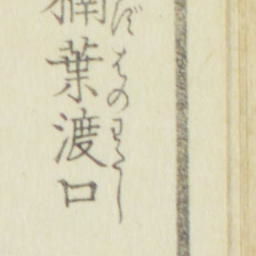 楠葉渡口
ずはのわたし